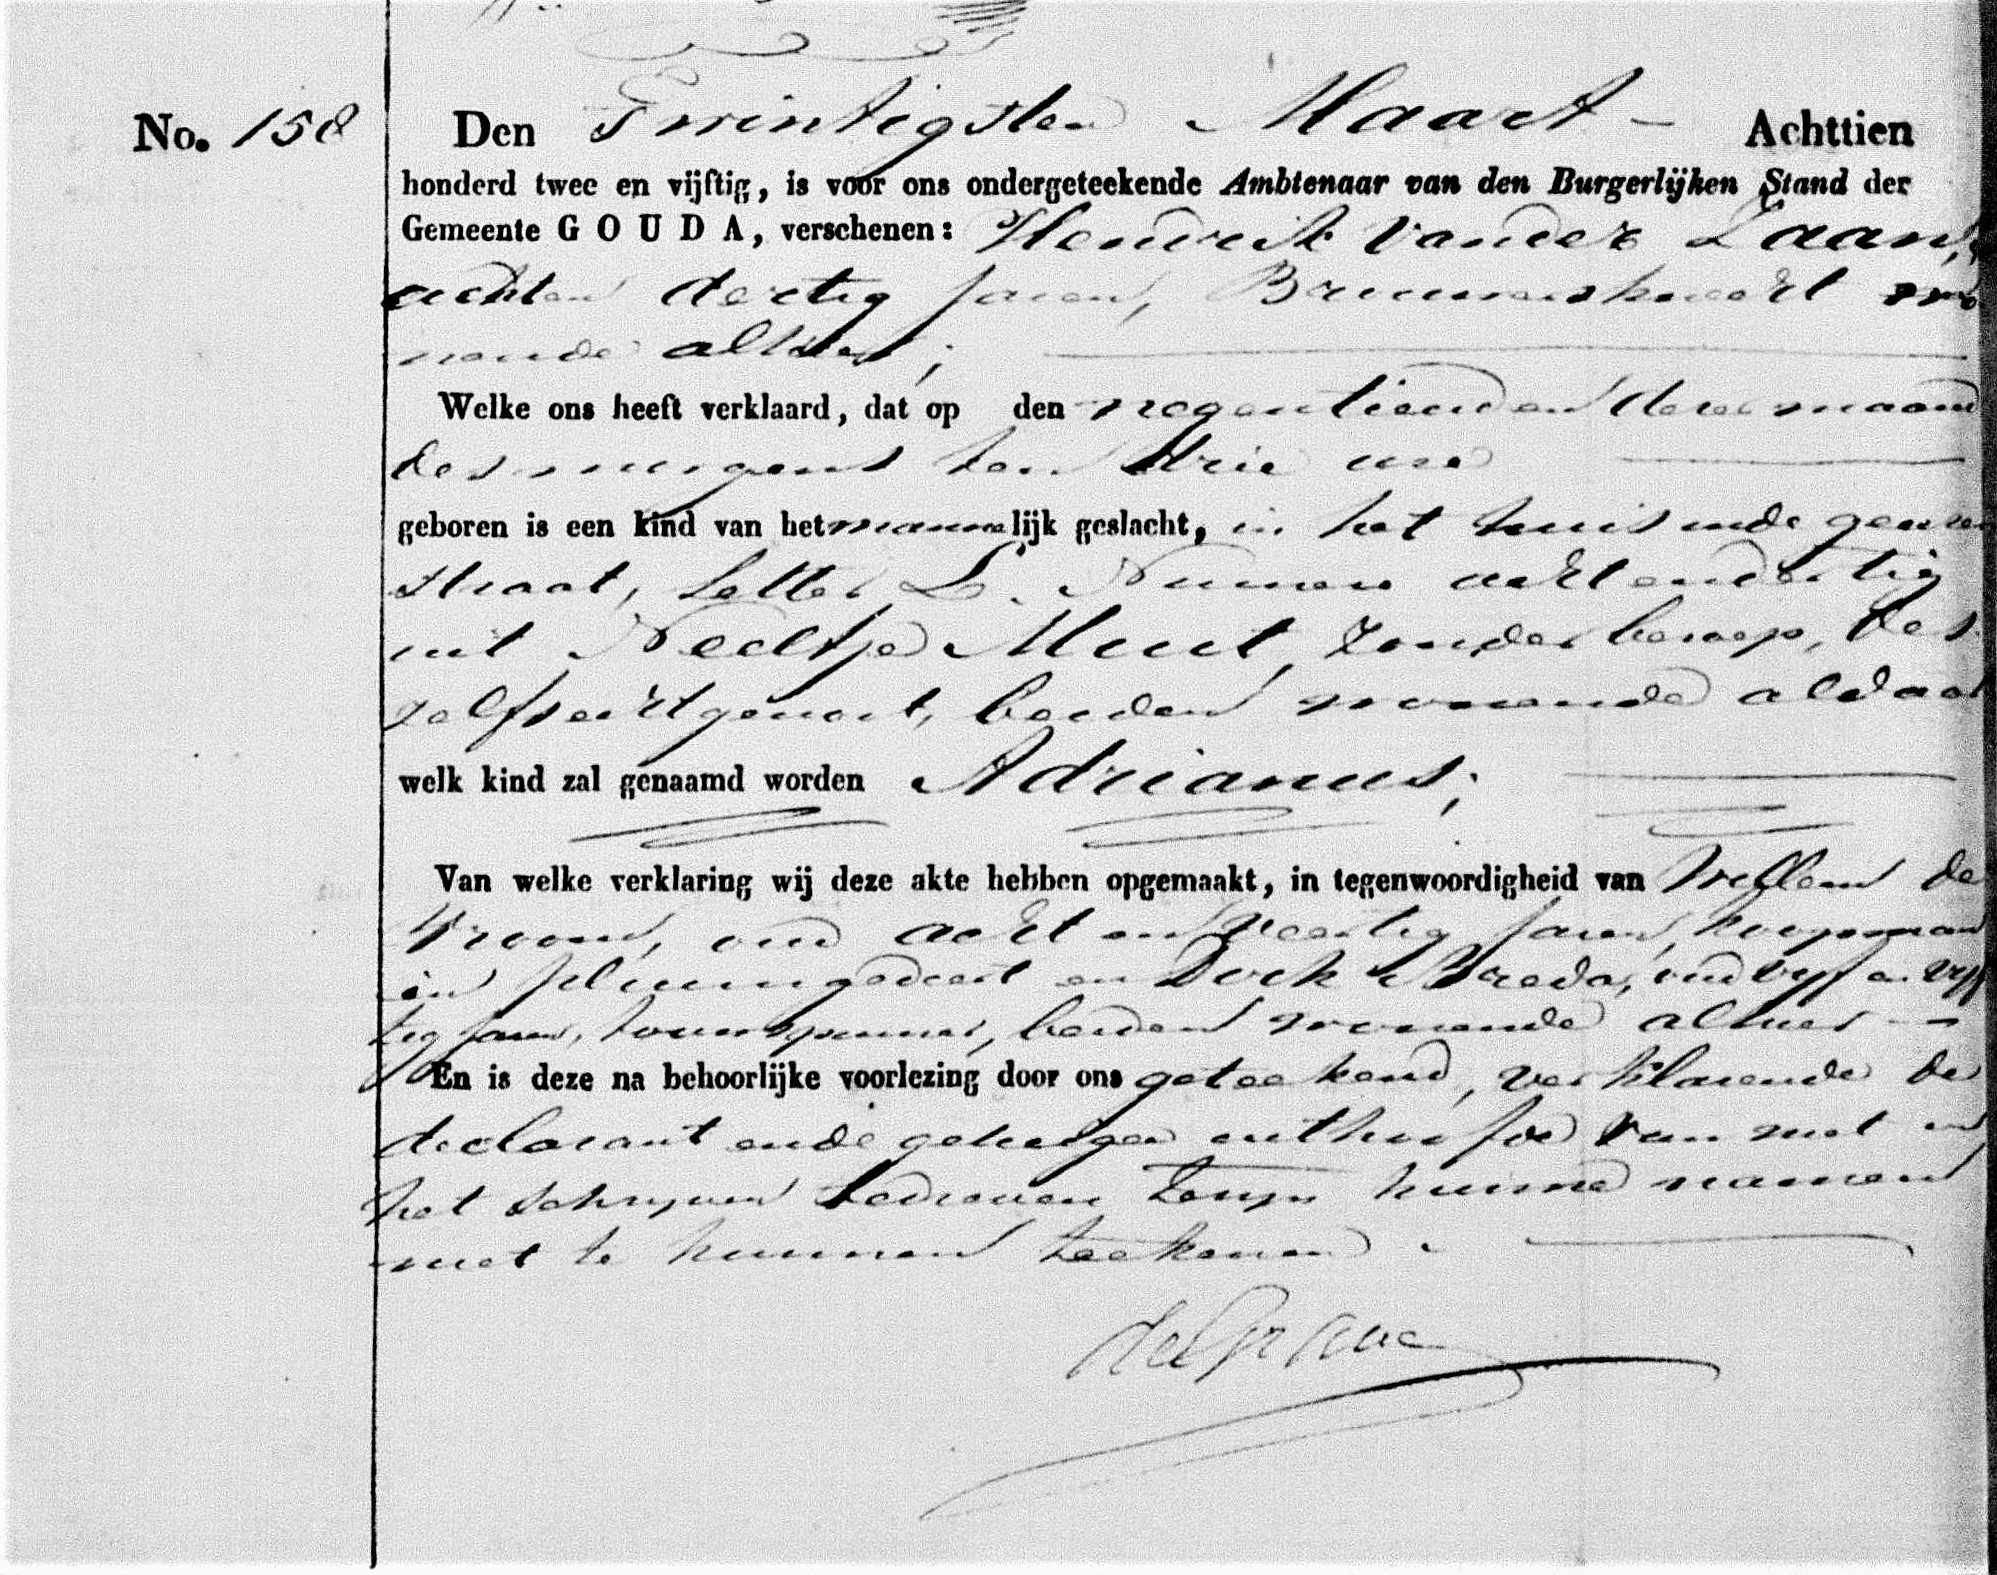 No. 158
Den Twintigsten Maart - Achttien
honderd twee en vijftig, is voor ons ondergeteekende Ambtenaar van den Burgerlijken Stand der
Gemeente GOUDA, verschenen: Hendrik van der Laan,
acht en dertig jaren, wo
nende alhier;
Welke ons heeft verklaard, dat op den negentienden dezer maand
des morgens ten drie ure
geboren is een kind van het mannelijk geslacht, in het huis in de
straat, Letter L. Numero acht en dertig
uit Neeltje Muut, zonder beroep, des
zelfs echtgenoot, beiden wonende aldaar
welk kind zal genaamd worden Adrianus;
Van welke verklaring wij deze akte hebben opgemaakt, in tegenwoordigheid van Willem de
Vroom, oud acht en veertig jaren, koopman
in pluimgedierte en Dirk Breda, oud vijf en vijf
tig jaren, touwspinner, beiden wonende alhier
En is deze na behoorlijke voorlezing door ons geteekend, verklarende de
declarant en de getuigen uit hoofde van niet in
het schrijven bedreven te zijn hunne namen
niet te kunnen teekenen.